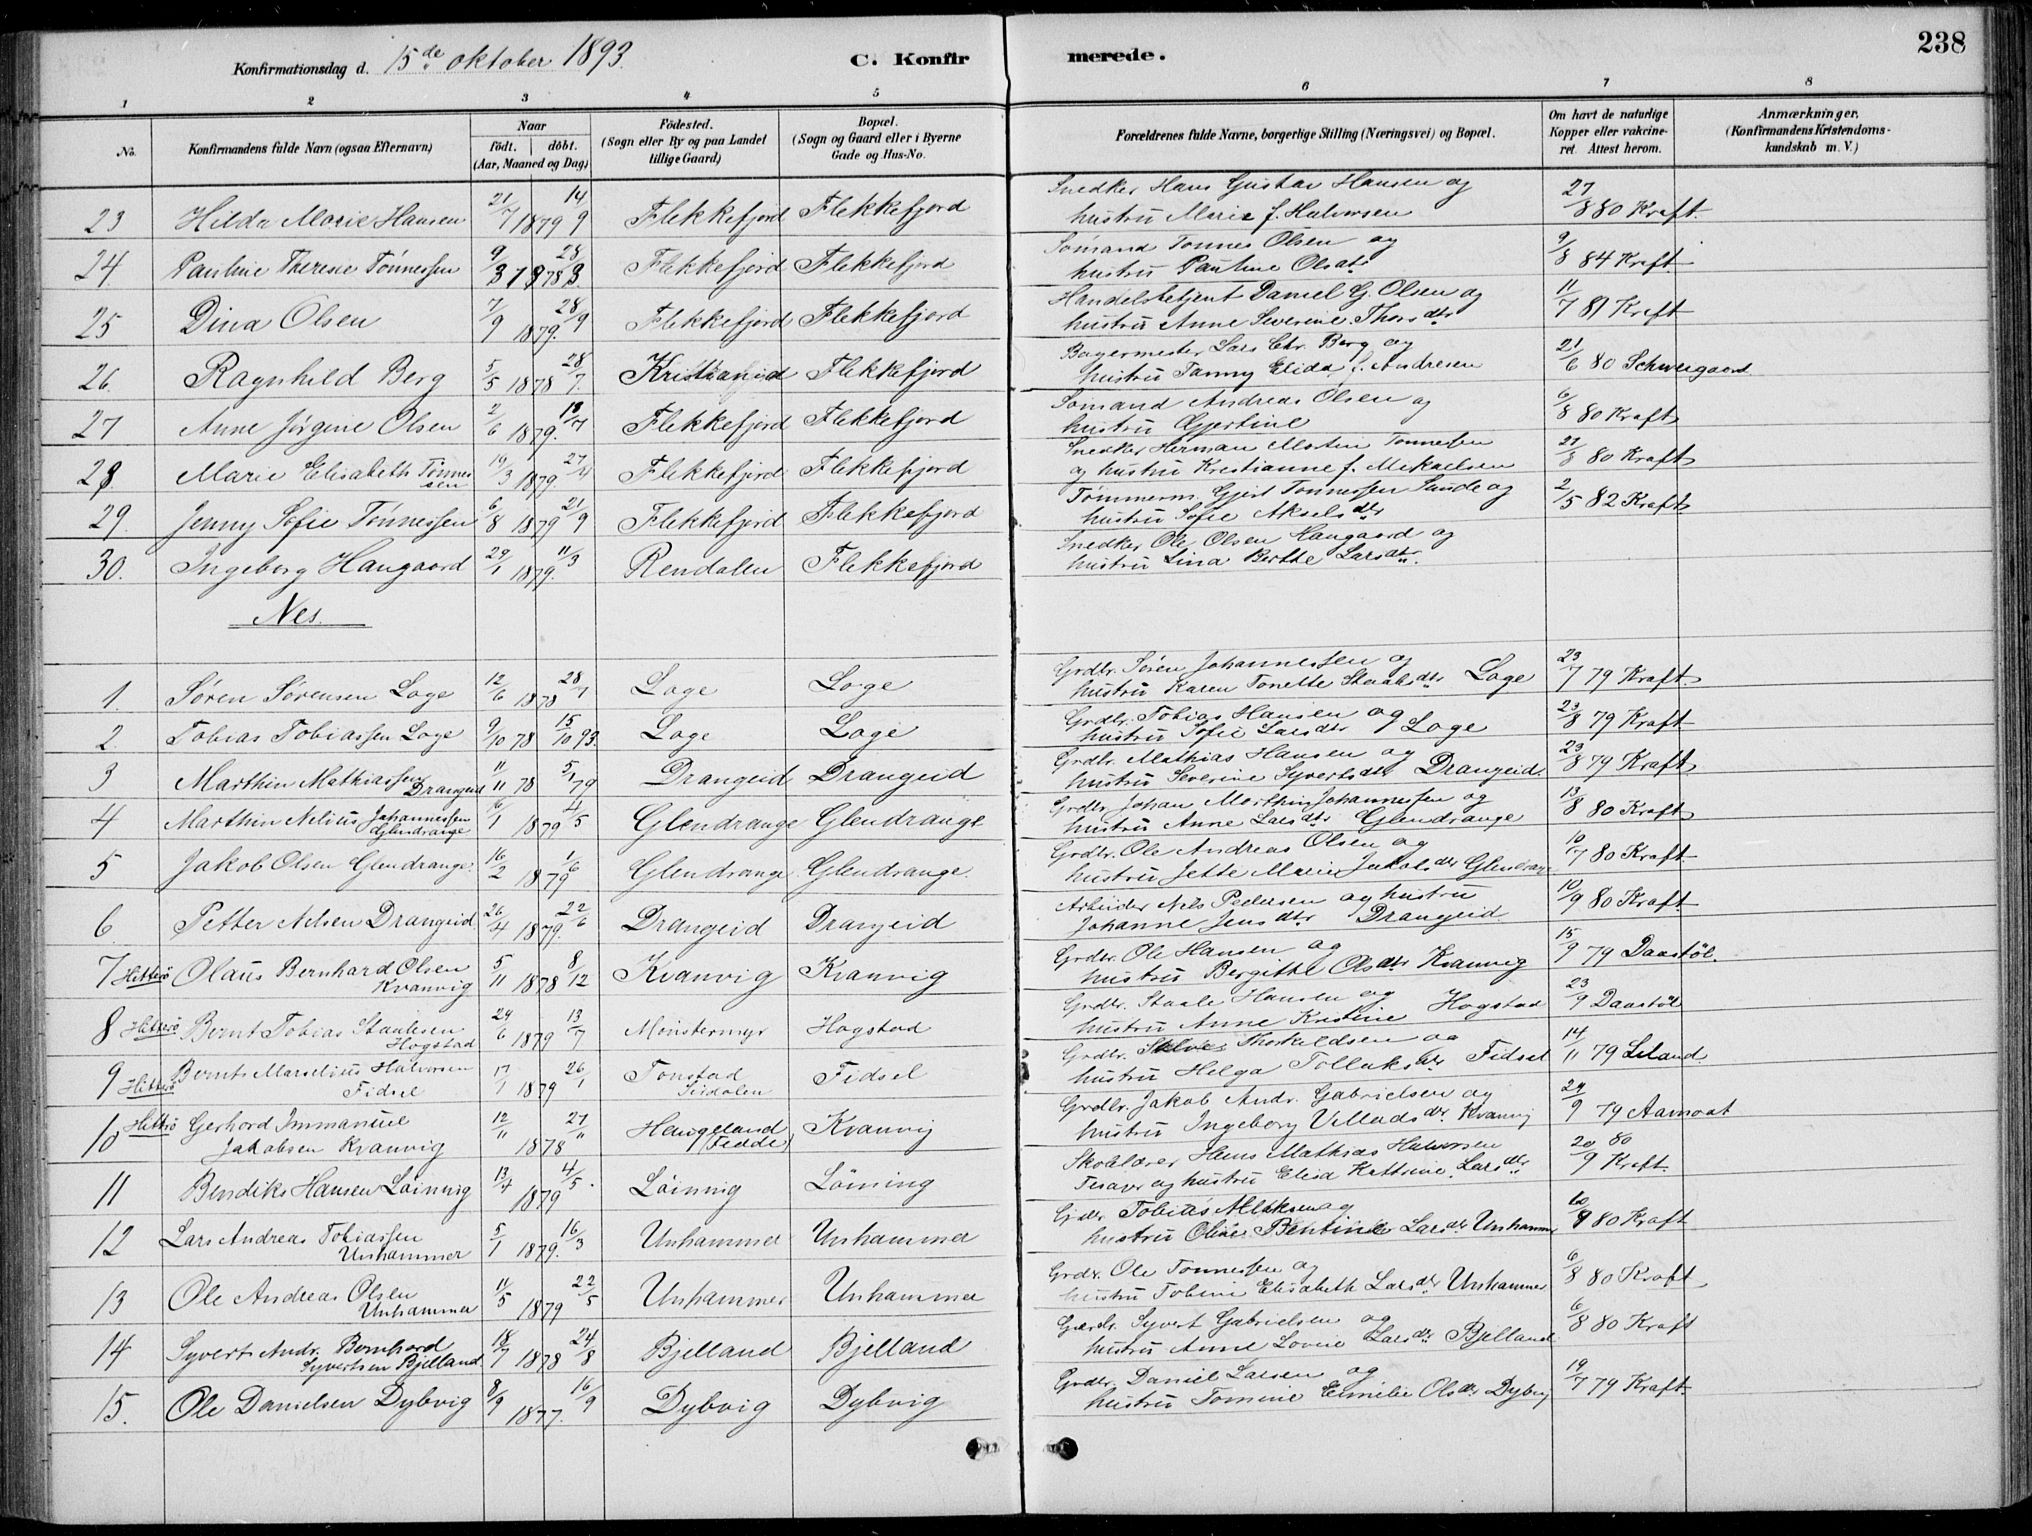 Konfirmationsdag d. 15de oktober 1893.
C. Konfirmerede.
238
1 2 3 4 5 6 7 8
No.
Konfirmandens fulde Navn (ogsaa Efternavn)
Naar
födt. döbt.
(Aar, Maaned og Dag)
Födested.
(Sogn eller By og paa Landet
tillige Gaard)
Bopæl.
(Sogn og Gaard eller i Byerne
Gade og Hus-No.
Forældrenes fulde Navne, borgerlige Stilling (Næringsvei) og Bopæl.
Om havt de naturlige
Kopper eller vakcine-
ret. Attest herom.
Anmærkninger.
(Konfirmandens Kristendoms-
kundskab m. V.)
23 Hilda Marie Hansen 21/7 1879 14/9 Flekkefjord Flekkefjord Snedker Hans Gustav Hansen og
hustru Marie f. Halvorsen 27/8 80 Kraft.
24 Pauline Therese Tönnessen 9/3 1878 28/3 Flekkefjord Flekkefjord Sömand Tönnes Olsen og
hustru Pauline Olsdtr 9/8 84 Kraft
25 Dina Olsen 7/9 1879. 28/9 Flekkefjord Flekkefjord Handelsbetjent Daniel G. Olsen og
hustru Anne Severine Thorsdtr 11/7 81 Kraft
26. Ragnhild Berg 5/5 1878 28/7 Kristiania Flekkefjord Bagermester Lars Chr. Berg og
hustru Fanny Elida f. Andresen 21/6 80 Schweigaard
27 Anne Jörgine Olsen 2/6 1879. 13/7 Flekkefjord Flekkefjord Sömand Andreas Olsen og
hustru Gjertine 6/8 80 Kraft
28 Marie Elisabeth Tönnes
sen 16/3 1879. 27/4 Flekkefjord Flekkefjord Snedker Herman Morten Tönnessen
og hustru Kristianne f. Mikaelsen 27/8 80 Kraft
29. Jenny Sofie Tönnessen 6/8 1879 21/9 Flekkefjord Flekkefjord Tömmerm. Gjert Tönnessen Sunde og
hustru Sofie Akselsdtr 2/5 82 Kraft
30. Ingeborg Haugaard 29/1 1879. 11/3 Rendalen Flekkefjord Snedker Ole Olsen Haugaard og
hustru Lina Berthe Larsdtr.
Nes.
1. Sören Sörensen Loge 12/6 1878 28/7 Loge Loge Grdbr. Sören Johannessen og
hustru Karen Tonette Staalesdtr Loge 23/7 79 Kraft.
2 Tobias Tobiassen Loge 9/10 78 15/10 93. Loge Loge Grdbr. Tobias Hansen og
hustru Sofie Larsdtr Loge 23/8 79 Kraft
3 Marthin Mathiassen
Drangeid 11/11 78 5/1 79 Drangeid Drangeid Grdbr. Mathias Hansen og
hustru Severine Syvertsdtr Drangeid. 23/8 79 Kraft
4 Marthin Nelius Johannessen
Glendrange 6/1 1879 4/5 Glendrange Glendrange Grdbr. Johan Marthin Johannessen og
hustru Anne Larsdtr Glendrange 13/8 80 Kraft
5 Jakob Olsen Glendrange. 16/2 1879 1/6 Glendrange Glendrange. Grdbr. Ole Andreas Olsen og
hustru Jette Marie Jakobsdtr Glendrange 10/7 80 Kraft
6 Petter Nelsen Drangeid 26/4 1879. 22/6 Drangeid Drangeid Arbeider Nels Pedersen og hustru
Johanne Jensdtr Drangeid 10/9 80 Kraft
7 Hitterö Olaus Bernhard Olsen
Kvanvig 5/11 1878 8/12 Kvanvig Kvanvig Grdbr. Ole Hansen og
hustru Bergitte Olsdtr Kvanvig 15/9 79 Daastöl.
8 Hitterö Bernt Tobias Staalesen
Hogstad 29/6 1879 13/7 Mönstermyr Hogstad Grdbr. Staale Hansen og
hustru Anne Kristine Hogstad 23/9 Daastöl
9 Hitterö Bernt Marselius Halvorsen
Fidsel 17/1 1879 26/1 Tonstad
Sirdalen Fidsel Grdbr. Thorkildsen og
hustru Helga Tollaksdtr Fidsel 14/11 79 Liland.
10 Hitterö Gerhard Immanuel
Jakobsen Kvanvig 12/11 1878 27/11 Haugeland
(Fedde) Kvanvig Grdbr. Jakob Andr. Gabrielsen og
hustru Ingeborg Villadsdtr Kvanvig 29/9 79 Aamodt
11 Bendiks Hansen Löinnig 13/4 1879 4/5. Löinnig Löining Skolelærer Hans Mathias Halvorsen
Tesaper og hustru Elisa Kathrine Larsdtr 20/9 80 Kraft.
12 Lars Andreas Tobiassen
Unhammer 5/1 1879. 16/3 Unhammer Unhammer Grdbr. Tobias Aleksen og
hustru Oline Bentine Larsdtr Unhammer 10/9 80 Kraft
13 Ole Andreas Olsen
Unhammer 11/5 1879 22/5 Unhammer Unhammer Grdbr. Ole Tönnessen og
hustru Tobine Elisabeth Larsdtr Unhammer 6/8 80 Kraft
14 Syvert Andr. Bernhard
Syvertsen Bjelland 18/7 1878 24/8 Bjelland Bjelland Gårdbr. Syvert Gabrielsen og
hustru Anne Lovise Larsdtr Bjelland. 6/8 80 Kraft
15. Ole Danielsen Dybvig 8/9 1877. 16/9 Dybvig Dybvig Grdbr. Daniel Larsen og
hustru Tomine Emelie Olsdtr Dybvig 19/7 79 Kraft.